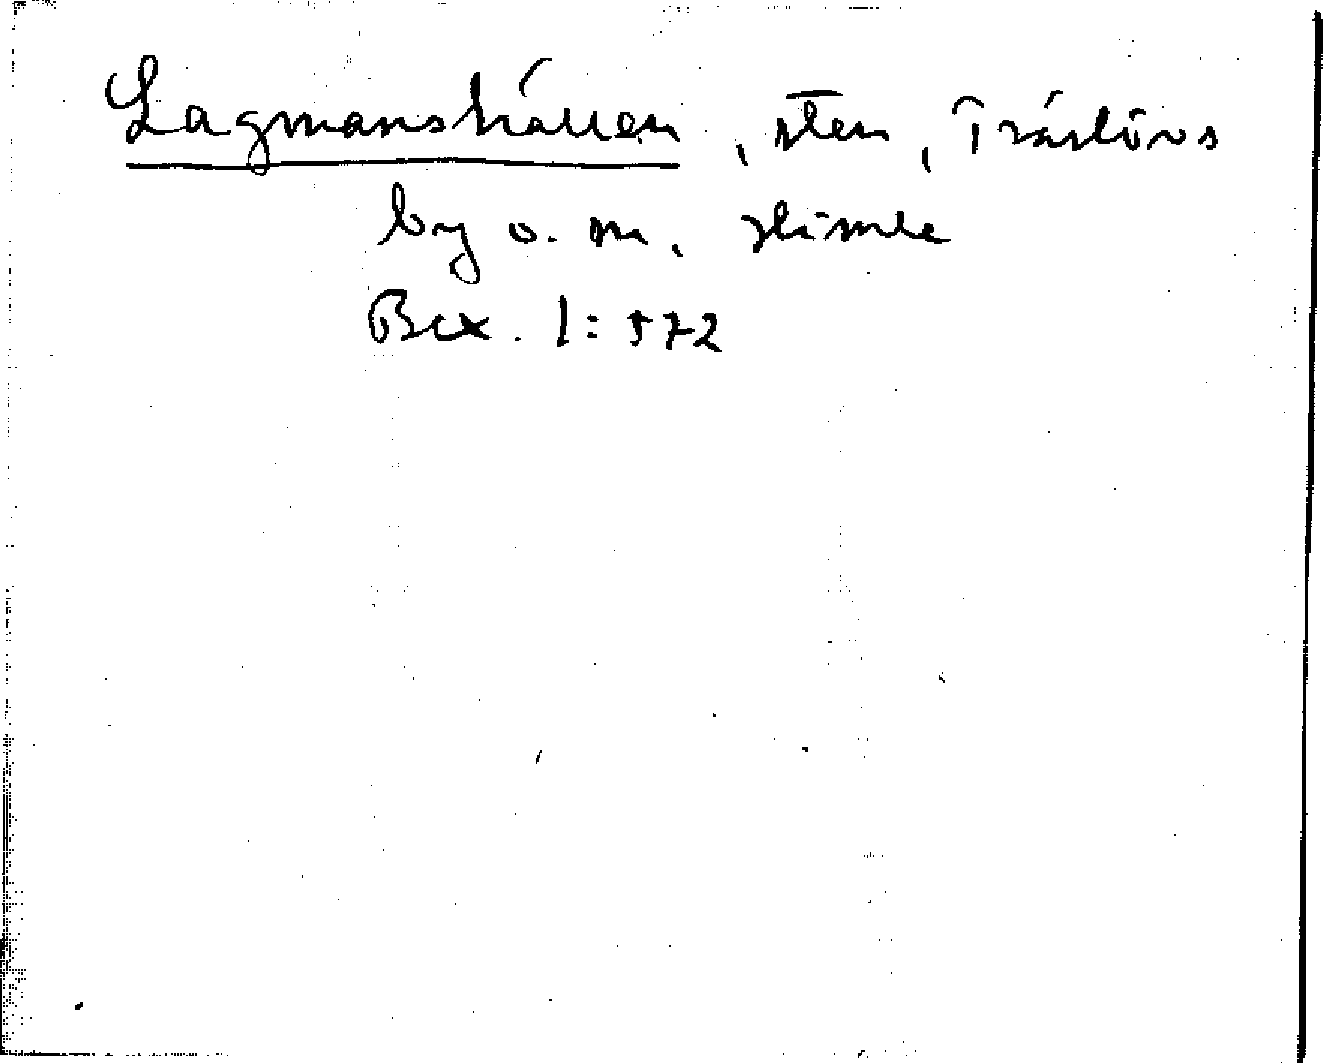 Lagmanshällen, sten, Träslövs
by o. sn. Himle
Bex. 1:572